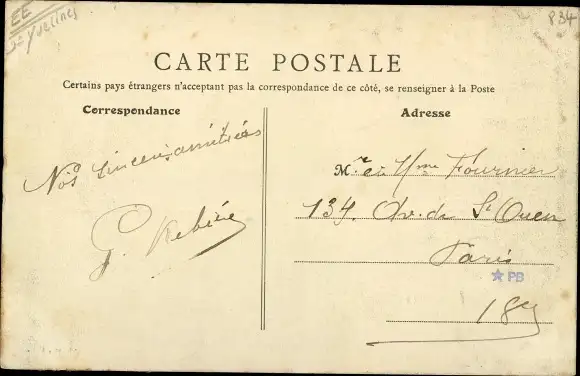 EE
Yvelines
P34
CARTE POSTALE
Certains pays étrangers n'acceptant pas la correspondance de ce côté, se renseigner à la Poste
Correspondance
Adresse
Nos sincères amitiées
G. Rebière
M.r et Mme Fournier
134. Av. de St Ouen
Paris
PB
18e